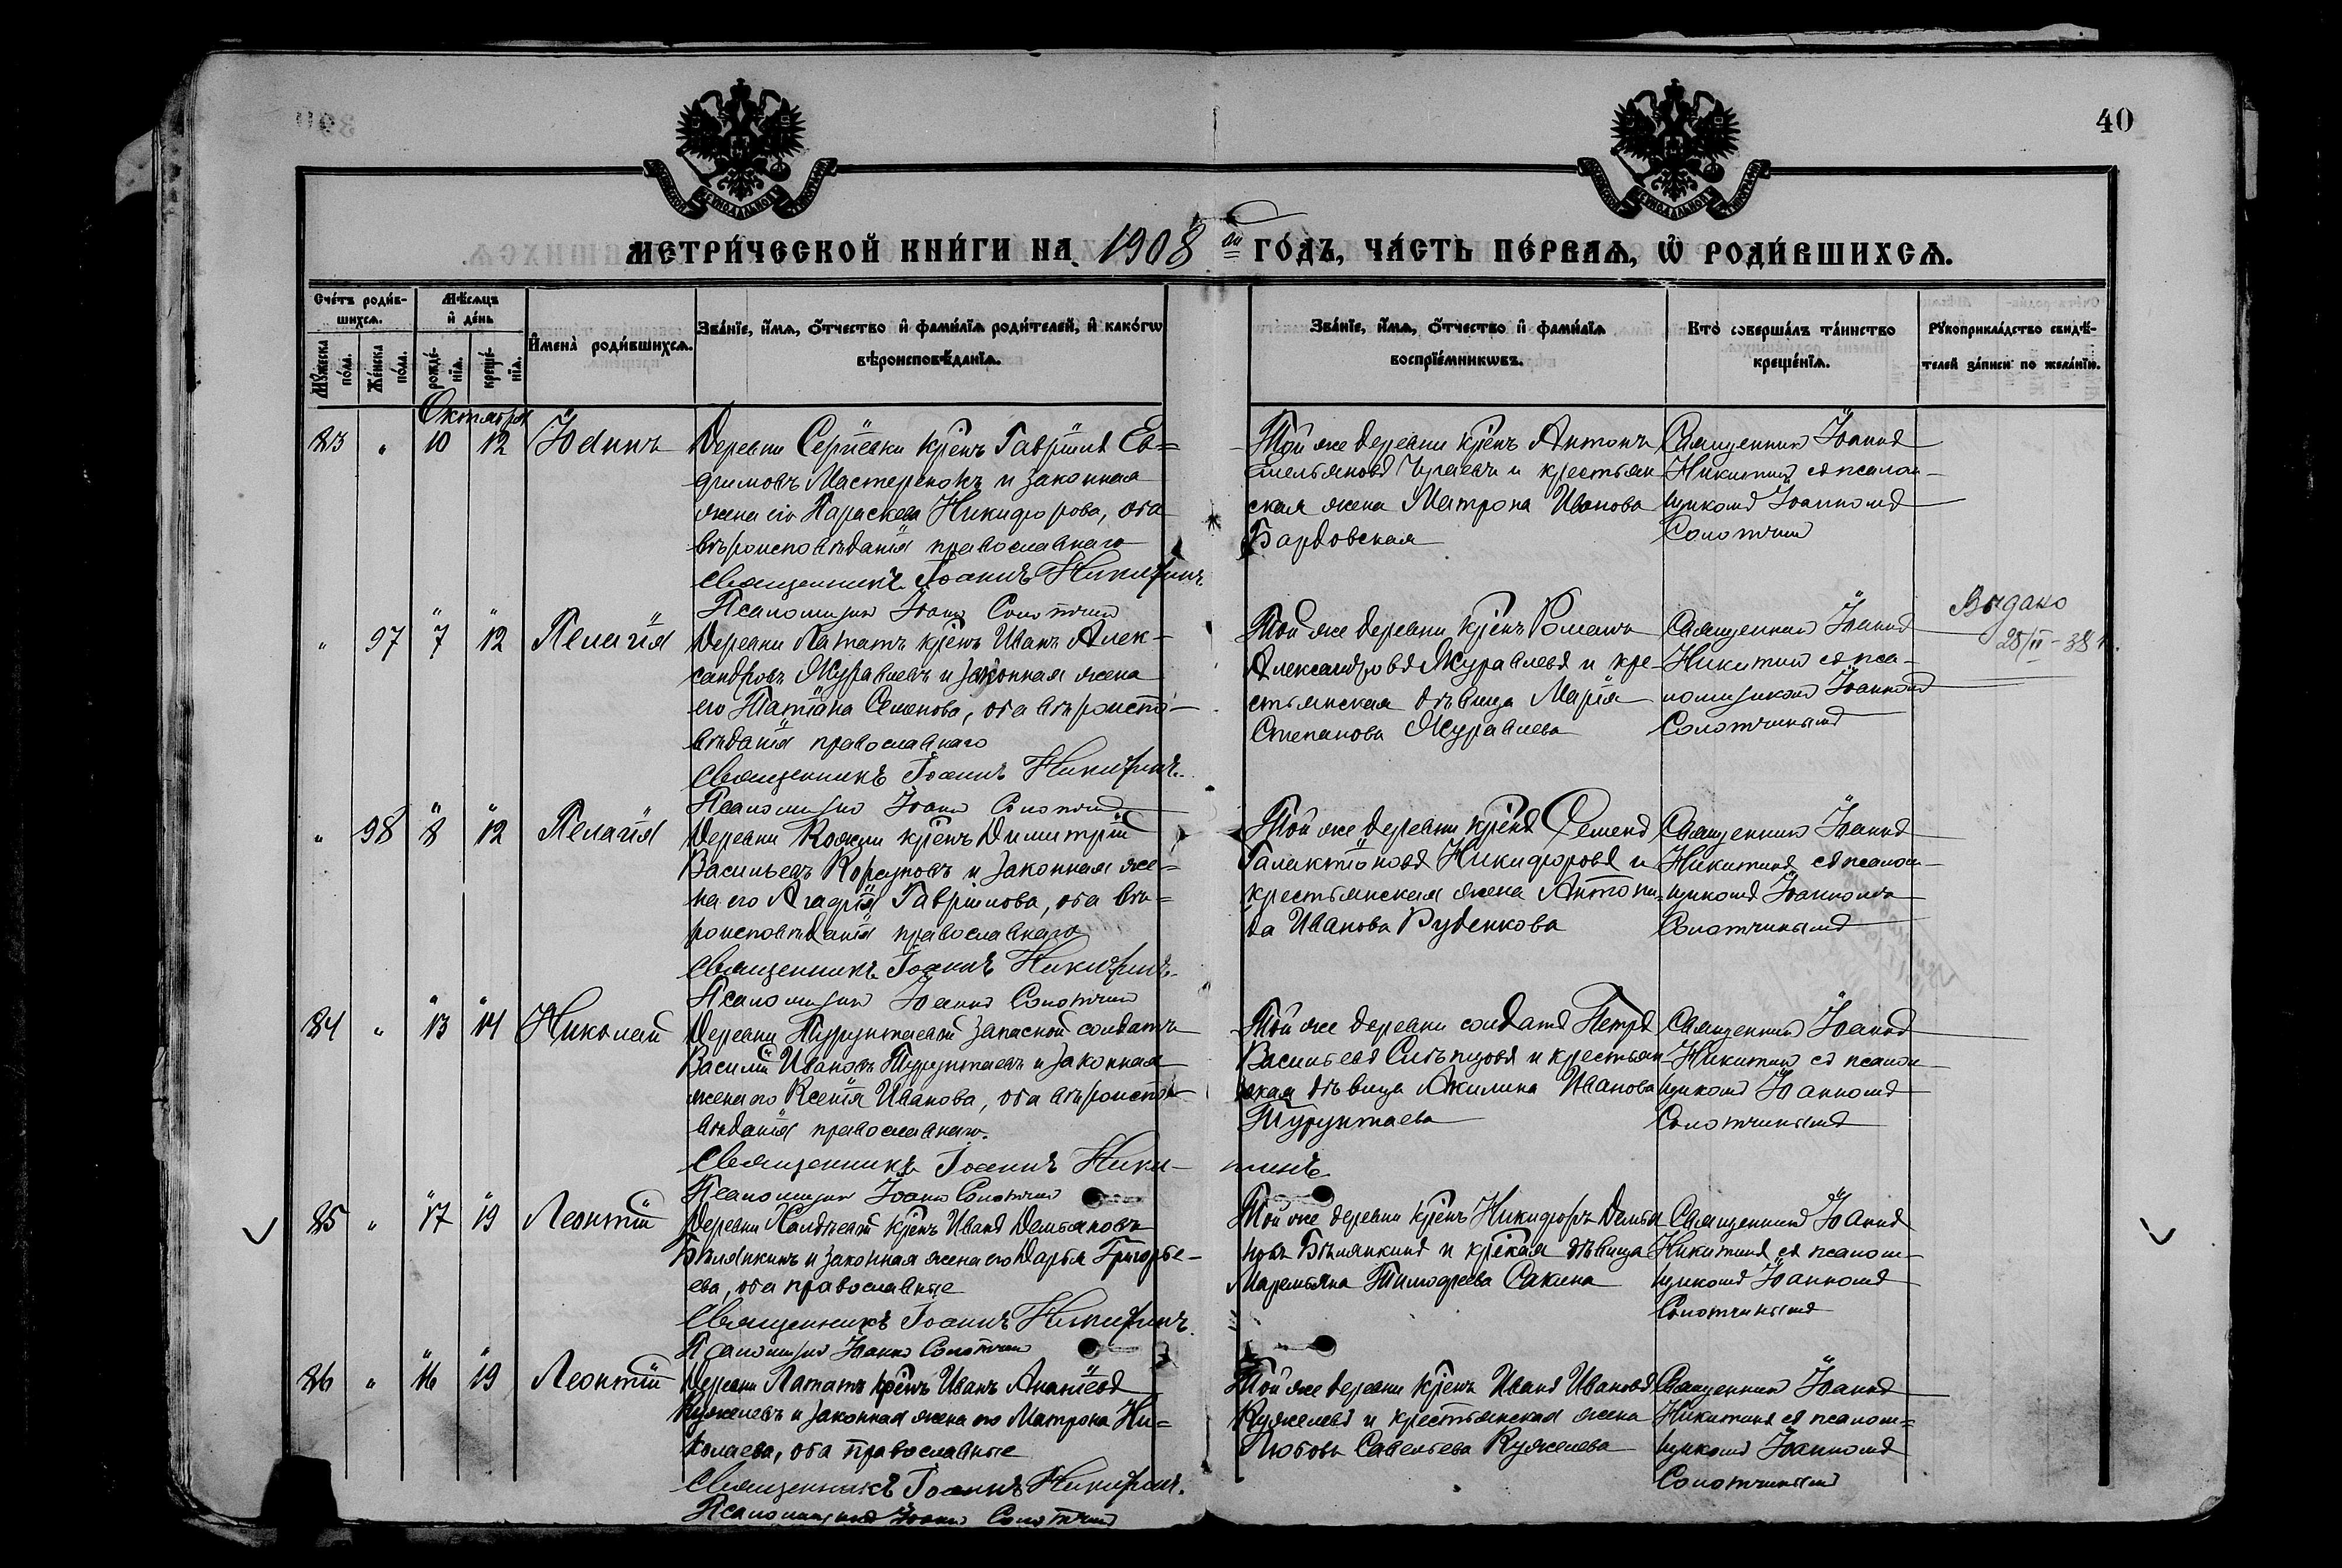 40
МЕТРИ́ЧЕСКОЙ КНИ́ГИ НА 1908 ой ГО́ДЪ, ЧА́СТЬ ПЕ́РВАѦ, Ѡ҆ РОДИ́ВШИХСѦ.
Сче́тъ роди́в-
шихсѧ.
Мꙋ́жеска
по́ла.
Же́нска
по́ла.
Мѣ́сѧцъ
и҆ де́нь
рожде́-
нїѧ.
креще́-
нїѧ.
И҆мена̀ роди́вшихсѧ.
Зва́нїе, и҆́мѧ, ѻ҆́тчество и҆ фами́лїѧ роди́телей, и҆ како́гѡ
вѣроисповѣ́данїѧ.
Зва́нїе, и҆́мѧ, ѻ҆́тчество и҆ фами́лїѧ
воспрїе́мникѡвъ.
Кто̀ соверша́лъ та́инство
креще́нїѧ.
Рꙋкоприкла́дство свидѣ́-
телей за́писи по жела́нїю.
Октября
83 " 10 12 Іоаннъ
Деревни Сергіевки кр̃нъ Гавріилъ Ев=
фимовъ Мастеренокъ и законная
жена его Параскева Никифорова, оба
вѣроисповѣданія православнаго
Священникъ Іоаннъ Никитинъ
Псаломщикъ Іоаннъ Солотчин
Той же деревни кр̃нъ Антонъ
Емельяновъ и крестьян
ская жена Матрона Иванова
Бардовская
Священникъ Іоаннъ
Никитинъ съ псалом-
щикомъ Іоанномъ
Солотчин
" 97 7 12 Пелагія
Деревни Лататъ кр̃нъ Иванъ Алек-
сандровъ Журавлевъ и законная жена
его Татіана Семенова, оба вѣроиспо-
вѣданія православнаго
Священникъ Іоаннъ Никитинъ.
Псаломщикъ Іоаннъ Солотчин
Той же деревни кр̃нъ Романъ
Александровъ Журавлевъ и кре-
стьянская дѣвица Марія
Степанова Журавлева
Священникъ Іоаннъ
Никитинъ съ пса-
ломщикомъ Іоанномъ
Солотчинымъ
Выдано
25/II-38 г.
" 98 8 12 Пелагія
Деревни кр̃нъ Димитрій
Васильевъ Корсуновъ и законная же-
на его Агафія Гавріилова, оба вѣ=
роисповѣданія православнаго
Священникъ Іоаннъ Никитинъ.
Псаломщикъ Іоаннъ Солотчин
Той же деревни кр̃нъ Семенъ
Галактіоновъ Никифоровъ и
крестьянская жена Антони-
да Иванова Руденкова
Священникъ Іоаннъ
Никитинъ съ псалом-
щикомъ Іоанномъ
Солотчинымъ
84 " 13 14 Николай
Деревни Турунтаевой запасной солдатъ
Василій Ивановъ Турунтаевъ и законная
жена его Ксенія Иванова, оба вѣроиспо-
вѣданія православнаго.
Священникъ Іоаннъ Ники-
тинъ
Псаломщикъ Іоаннъ Солотчин
Той же деревни солдатъ Петръ
Васильевъ Слѣпцовъ и крестьян
ская дѣвица Акилина Иванова
Турунтаева
Священникъ Іоаннъ
Никитинъ съ псалом
щикомъ Іоанномъ
Солотчинымъ
85 " 17 19 Леонтій
Деревни Халдѣевой кр̃нъ Иванъ Демьяновъ
Бѣлянкинъ и законная жена его Дарья Григорье-
ева, оба православные
Священникъ Іоаннъ Никитинъ.
Псаломщикъ Іоаннъ Солотчин
Той же деревни кр̃нъ Никифоръ Демья
новъ Бѣлянкинъ и кр̃ская дѣвица
Маремьяна Тимофеева Сакина
Священникъ Іоаннъ
Никитинъ съ псалом-
щикомъ Іоанномъ
Солотчинымъ
86 " 16 19 Леонтій
Деревни Лататъ кр̃нъ Иванъ Ананіевъ
Кужелевъ и законная жена его Матрона Ни=
колаева, оба православные
Священникъ Іоаннъ Никитинъ.
Псаломщикъ Іоаннъ Солотчин
Той же деревни кр̃нъ Иванъ Ивановъ
Кужелевъ и крестьянская жена
Любовь Савельева Кужелева
Священникъ Іоаннъ
Никитинъ съ псалом=
щикомъ Іоанномъ
Солотчинымъ